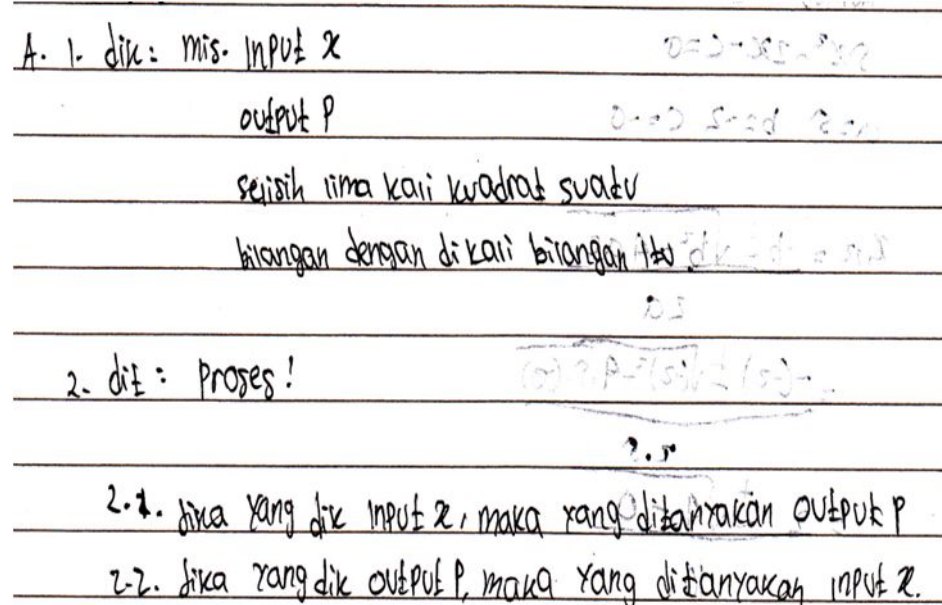 A. 1. dik: mis. input x
output p
selisih lima kali kuadrat suatu
bilangan dengan di kali bilangan itu.
2. dit: proses!
2.1. Jika yang dik input x, maka yang ditanyakan output p
2-2. Jika yang dik output p, maka yang ditanyakan input x.